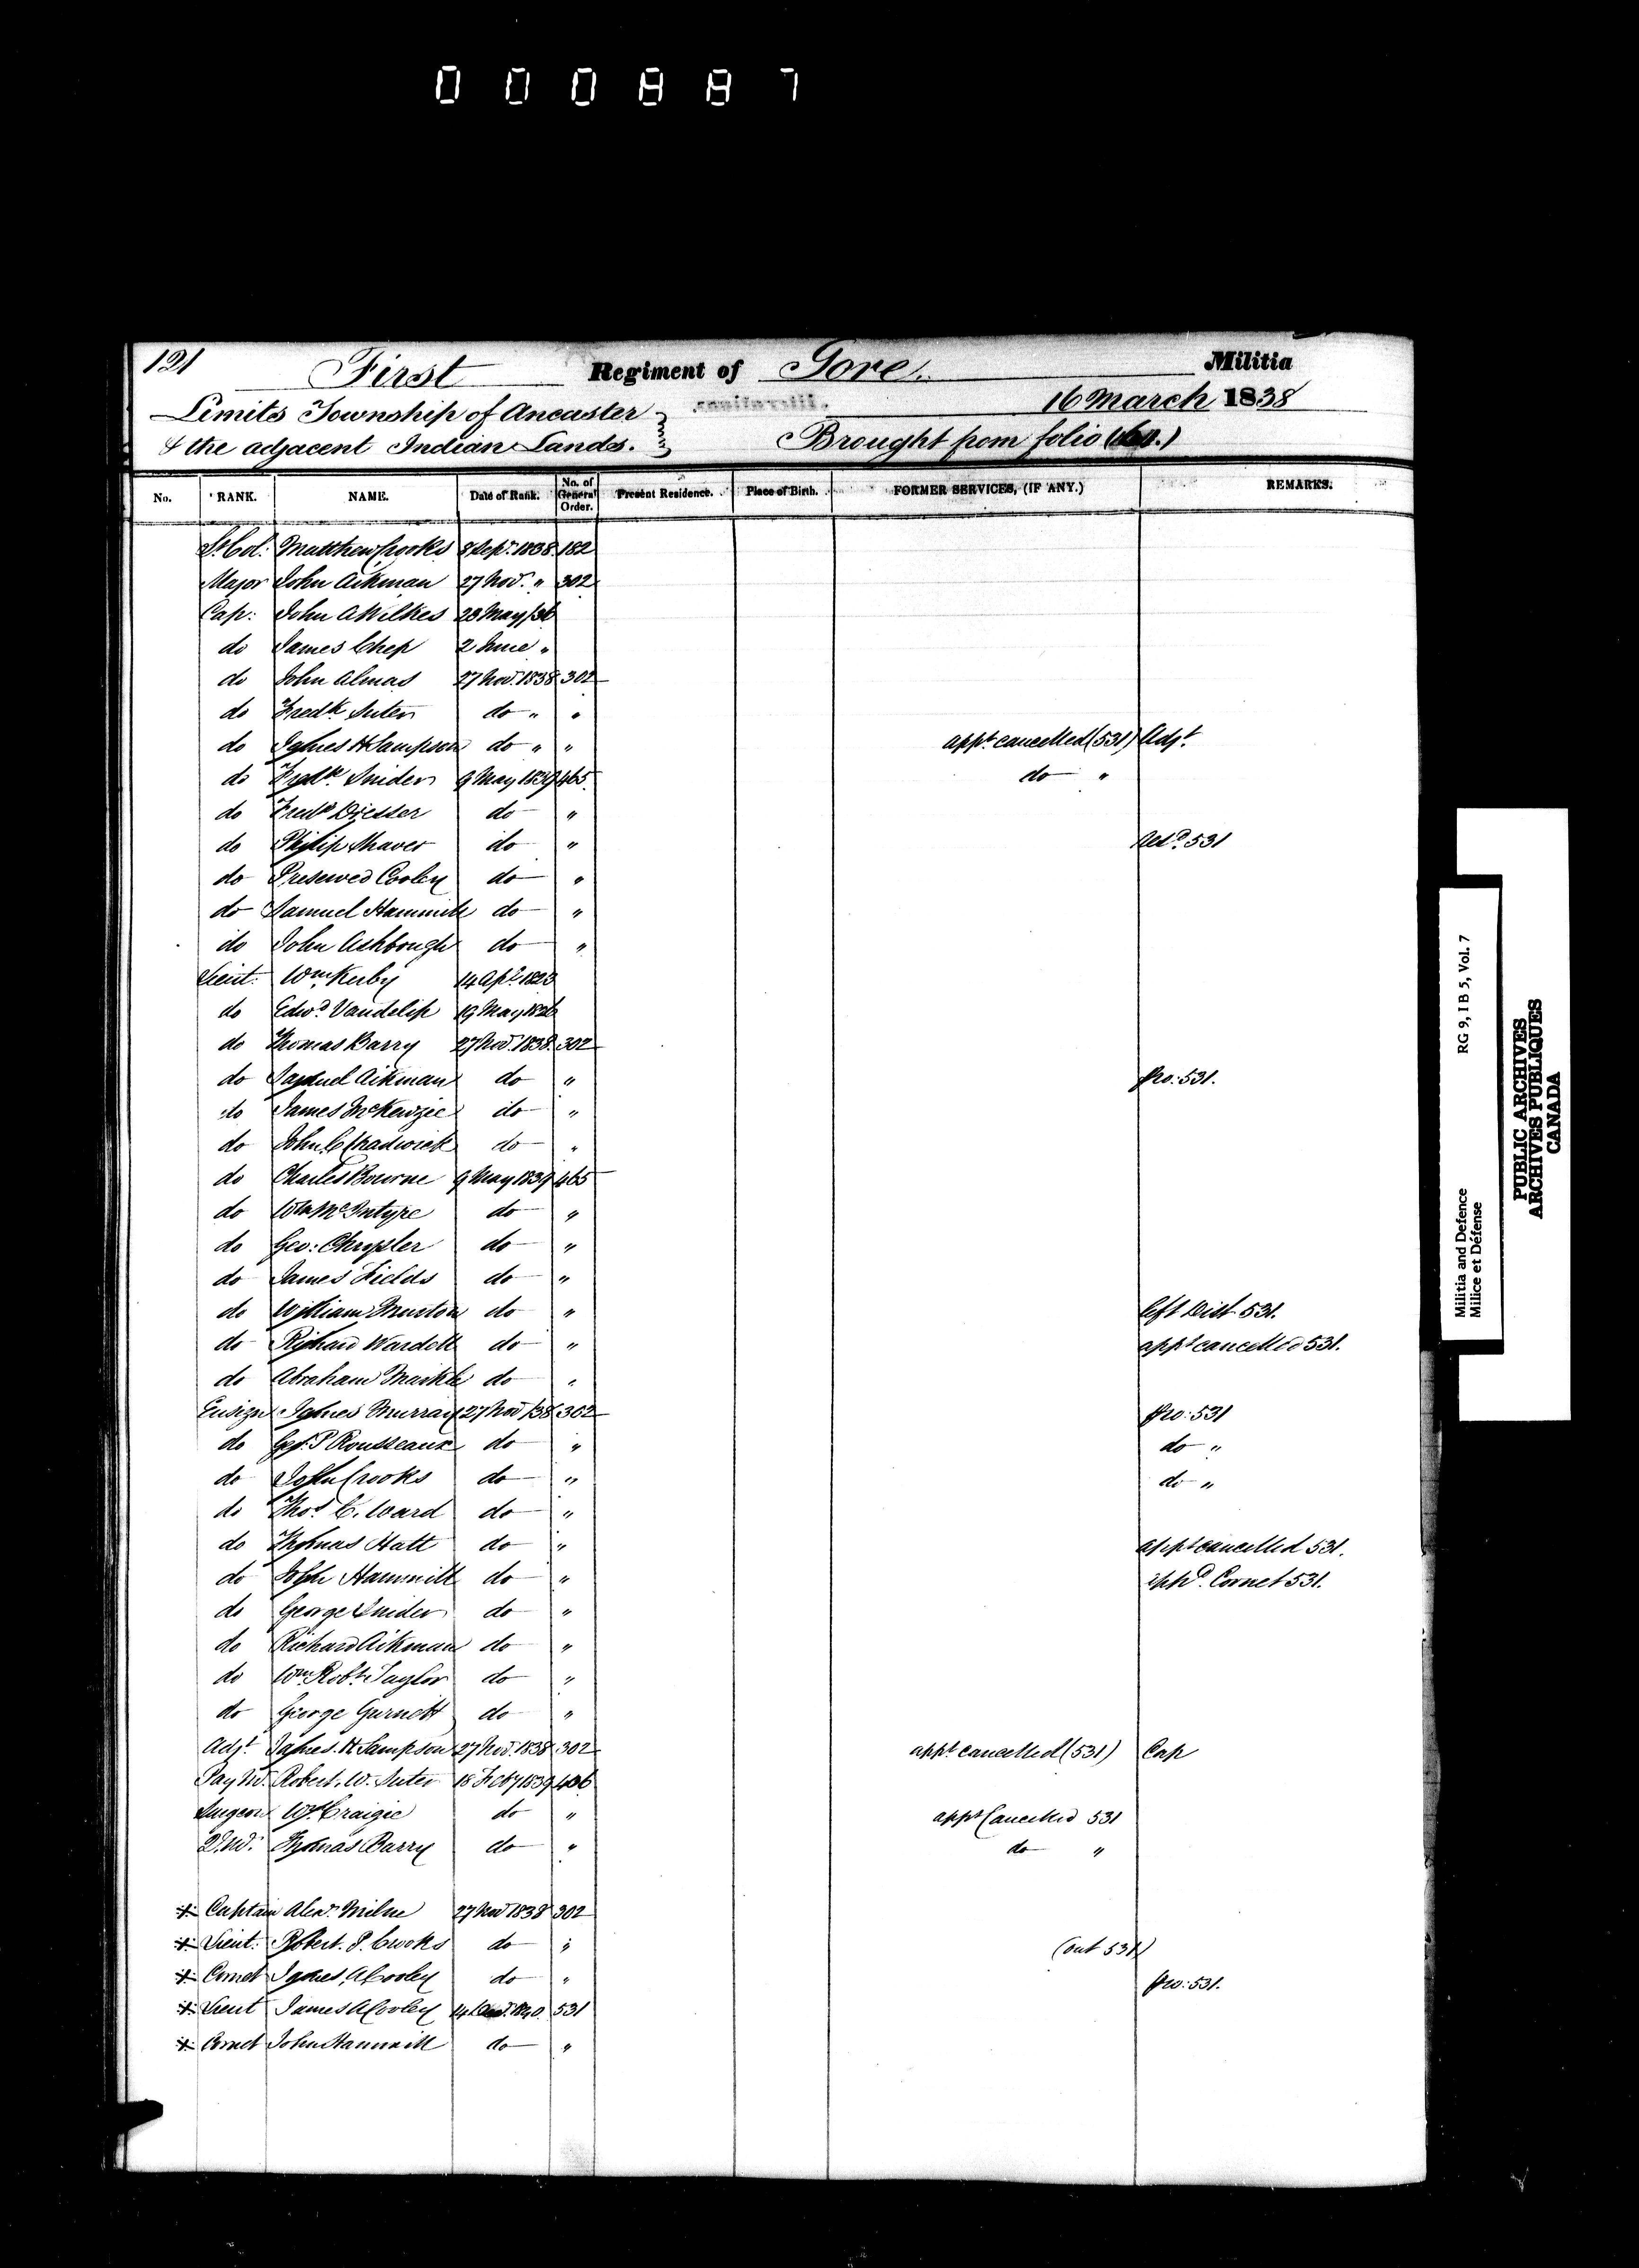 000887
121 First Regiment of Gore. Militia
Limits Township of Ancaster 16 March 1838
& the adjacent Indian Lands. Brought from folio
No. RANK. NAME. Date of Rank. No. of General Order. Present Residence. Place of Birth. FORMER SERVICES, (IF ANY.) REMARKS.
Lt. Col: Matthew Crooks 8 Sepr. 1838 182
Major John Aikman 27 Nov. " 302
Cap: John A Wilkes 28 May/36
do James Chep 2 June "
do John Almas 27 Nov. 1838 302
do Fredk. Suter do " "
do James H Sampson do " " appt. cancelled (531) Adjt.
do Fredk. Snider 9 May 1839 465 do "
do Fredk do "
do Philip Shaver do " 531
do Preserved Cooley do "
do Samuel Hammill do "
do John Ashbough do "
Lieut: Wm. Kerby 14 Apl. 1823
do Edwd. Vanderlip 19 May 1826
do Thomas Barry 27 Nov. 1838. 302
do Samuel Aikman do " pro: 531.
do James McKenzie do "
do John Chadwick do "
do Charles Bourne 9 May 1839 465
do Wm McIntyre do "
do Geo: Chrysler do "
do James Fields do "
do William Murton do " left Dist 531.
do Richard Wardell do " appt cancelled 531.
do Abraham Markle do "
Ensign James Murray 27 Nov /38 302 pro: 531
do Geo. P Rousseaux do " do "
do John Crooks do " do "
do Thos. C. Ward do "
do Thomas Hatt do " appt cancelled 531.
do John Hammill do " appd. Cornet 531.
do George Snider do "
do Richard Aikman do "
do Wm. Robt. Taylor do "
do George Gurnett do "
Adjt. James. H. Sampson 27 Nov. 1838 302 appt cancelled (531) Cap
Pay M. Robert. W. Suter 18 Feby 1839 406
Surgeon Wm. Craigie do " appt Cancelled 531
Q.M. Thomas Barry do " do "
Captain Alexr. Milne 27 Nov 1838 302
Lieut: Robert. P. Crooks do " (out 531)
Cornet James A Cooley do " pro: 531.
Lieut James A Cooley 14 1840. 531
Cornet John Hammill do "
Militia and Defence RG 9, I B 5, Vol. 7
Milice et Défense
PUBLIC ARCHIVES
ARCHIVES PUBLIQUES
CANADA